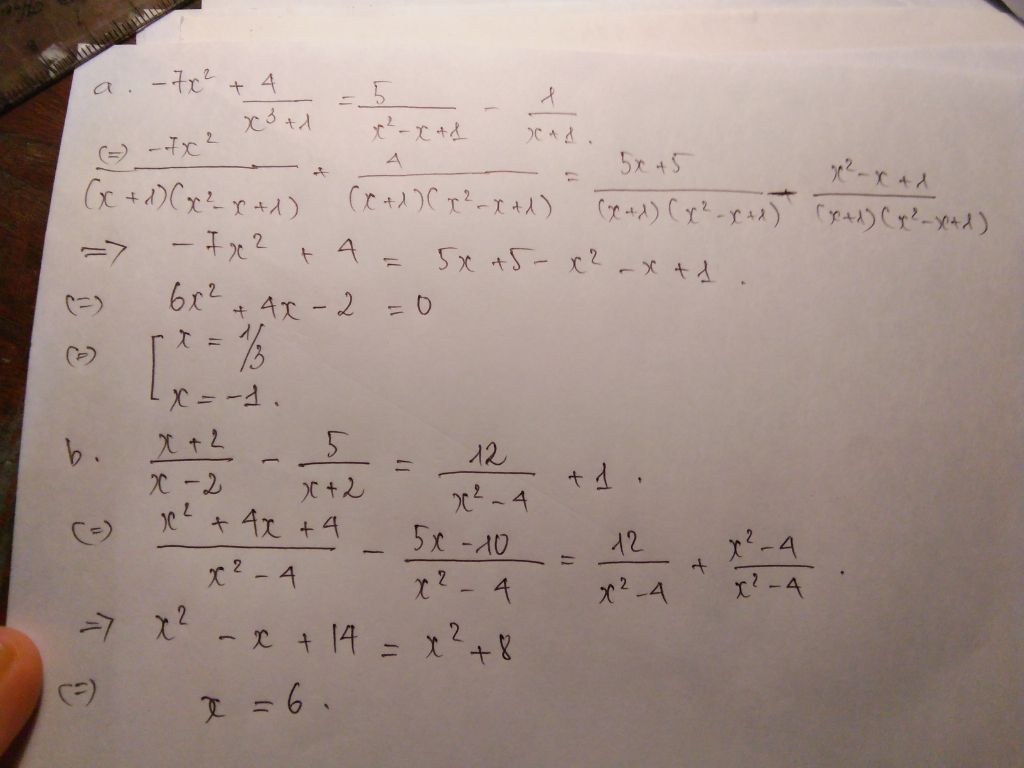 a. -7x² + 4/(x³+1) = 5/(x²-x+1) - 1/(x+1).
(=) -7x²/((x+1)(x²-x+1)) + 4/((x+1)(x²-x+1)) = (5x+5)/((x+1)(x²-x+1)) - (x²-x+1)/((x+1)(x²-x+1))
=> -7x² + 4 = 5x+5- x² - x + 1.
(=) 6x² + 4x - 2 = 0
(=) [ x = 1/3
x = -1.
b. (x+2)/(x-2) - 5/(x+2) = 12/(x²-4) + 1.
(=) (x² + 4x + 4)/(x²-4) - (5x-10)/(x²-4) = 12/(x²-4) + (x²-4)/(x²-4).
=> x² - x + 14 = x² + 8
(=) x = 6.